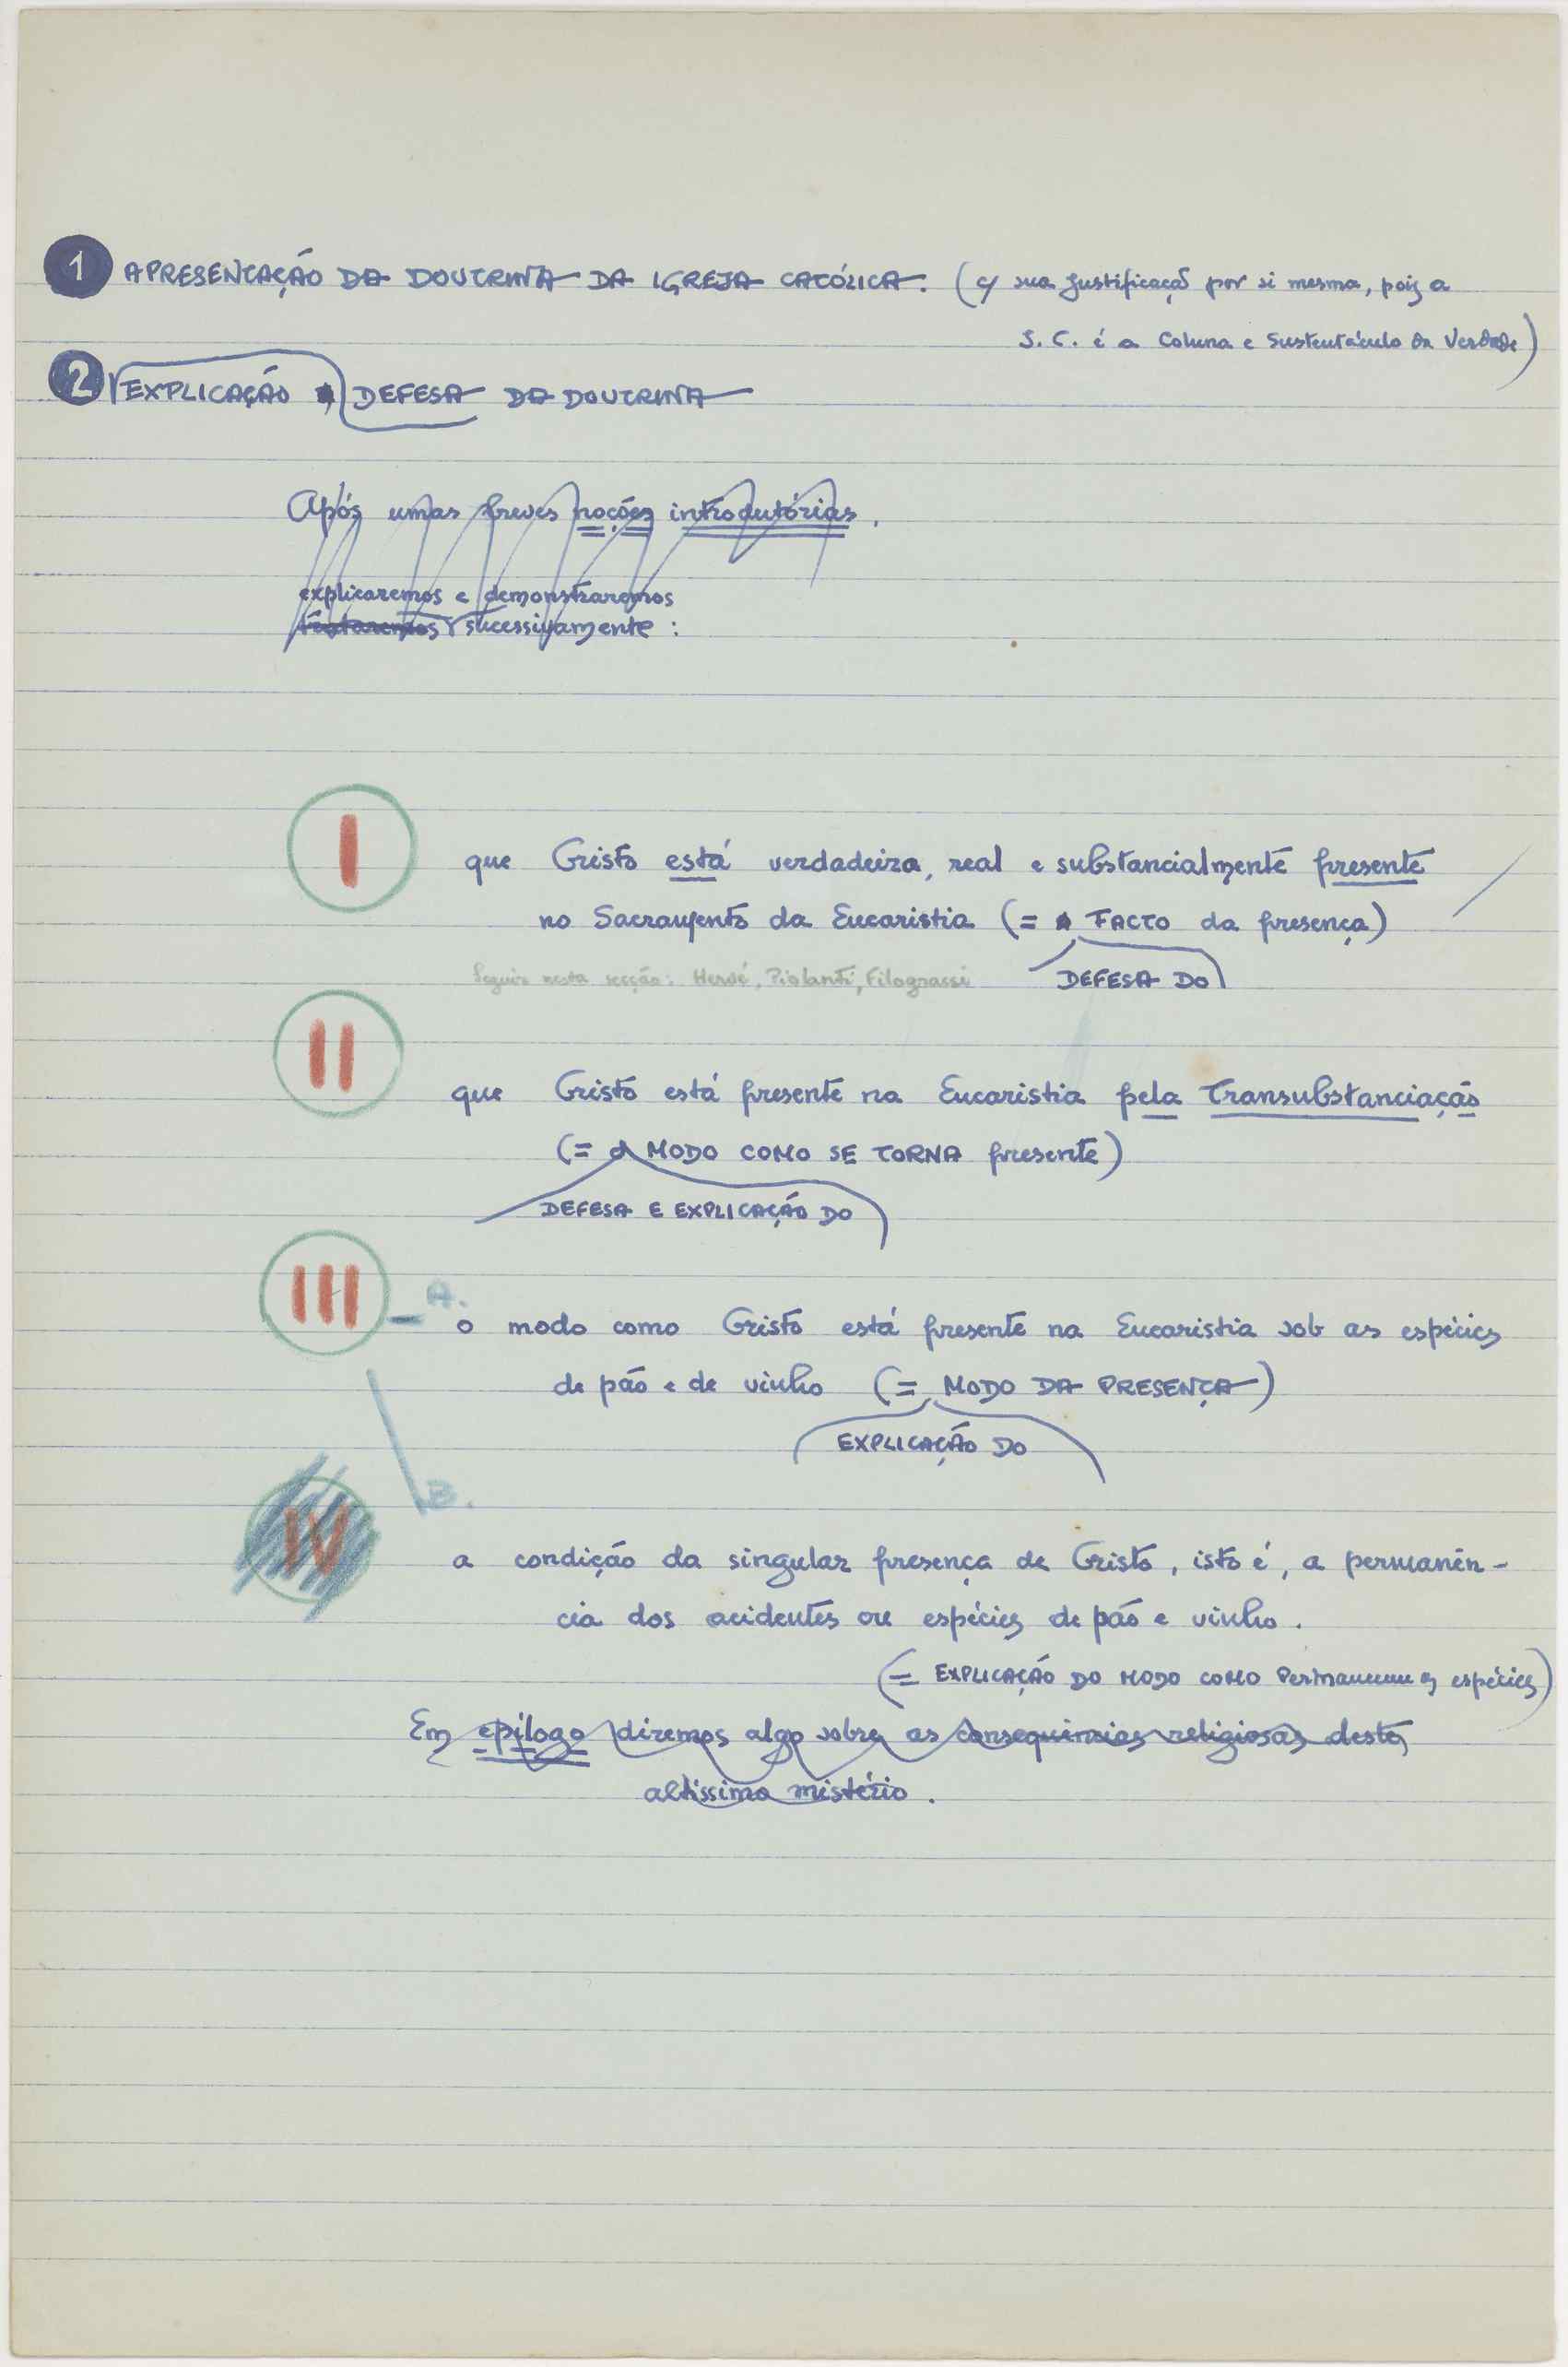 1 APRESENTAÇÃO DA DOUTRINA DA IGREJA CATÓLICA. (c/ sua justificação por si mesma, pois a
S. C. é a Coluna e Sustentáculo da Verdade)
2 EXPLICAÇÃO DEFESA DA DOUTRINA
Após umas breves noções introdutórias,
explicaremos e demonstraremos
trataremos sucessivamente :
I que Cristo está verdadeira, real e substancialmente presente
no Sacramento da Eucaristia (= FACTO da presença)
Seguir nesta secção: Hervé, Piolanti, Filograssi DEFESA DO
II que Cristo está presente na Eucaristia pela Transubstanciação
(= o MODO COMO SE TORNA presente)
DEFESA E EXPLICAÇÃO DO
III - A.
o modo como Cristo está presente na Eucaristia sob as espécies
de pão e de vinho (= MODO DA PRESENÇA)
EXPLICAÇÃO DO
IV B.
a condição da singular presença de Cristo, isto é, a permanên-
cia dos acidentes ou espécies de pão e vinho.
(= EXPLICAÇÃO DO MODO COMO Permanecem as espécies)
Em epílogo diremos algo sobre as consequências religiosas deste
altíssimo mistério.